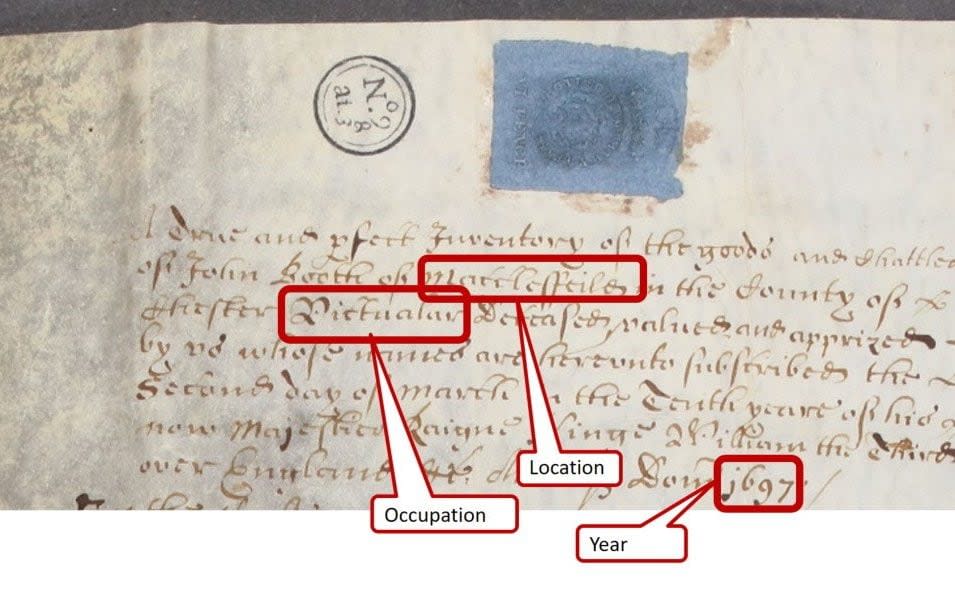 No
ai. 3 8
A True and pfect Inventory of the goods and chattle
of John Booth of Macclesfeild in the County of
Chester Victualar deceased valued and apprized
by us whose names are hereunto subscribed the
Second day of March in the Tenth yeare of his
now Majesties Raigne Kinge William the Third
over England &c. Dom 1697
Location
Occupation
Year